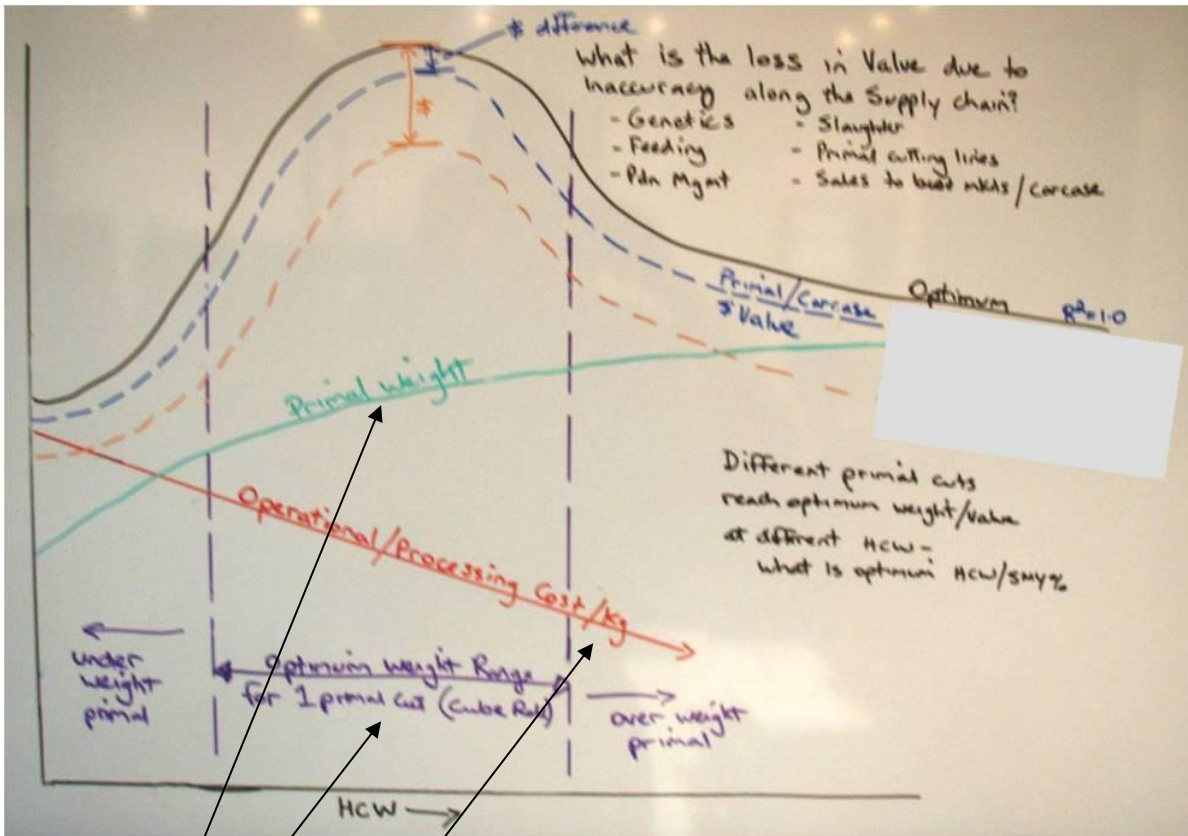 $ difference
What is the loss in Value due to
Inaccuracy along the Supply chain?
- Genetics
- Feeding
- Pdn Mgmt
- Slaughter
- Primal cutting lines
- Sales to best mkts/carcase
$
Primal/Carcase
$ Value
Optimum
R²=1.0
Primal weight
Operational/Processing Cost/Kg
Different primal cuts
reach optimum weight/value
at different HCW -
what is optimum HCW/SMY%
under
weight
primal
Optimum Weight Range
for 1 primal cut (Cube Roll)
over weight
primal
HCW